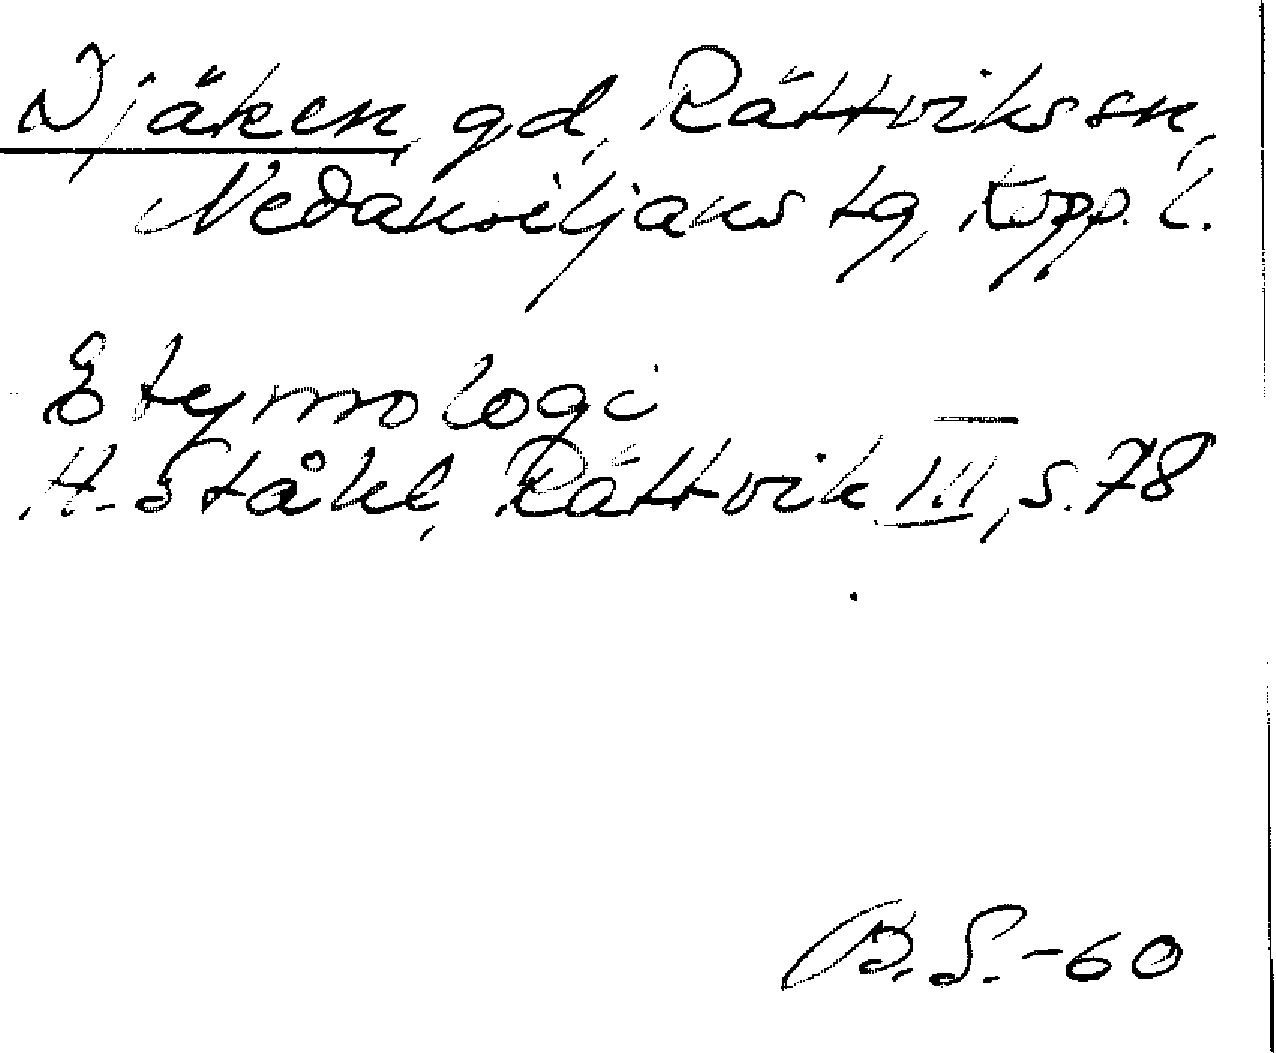 Djäken, gd, Rättviks sn,
Nedansiljans tg, Kopp. l.
Etymologi
H. Ståhl, Rättvik III, s. 78
B. S. -60